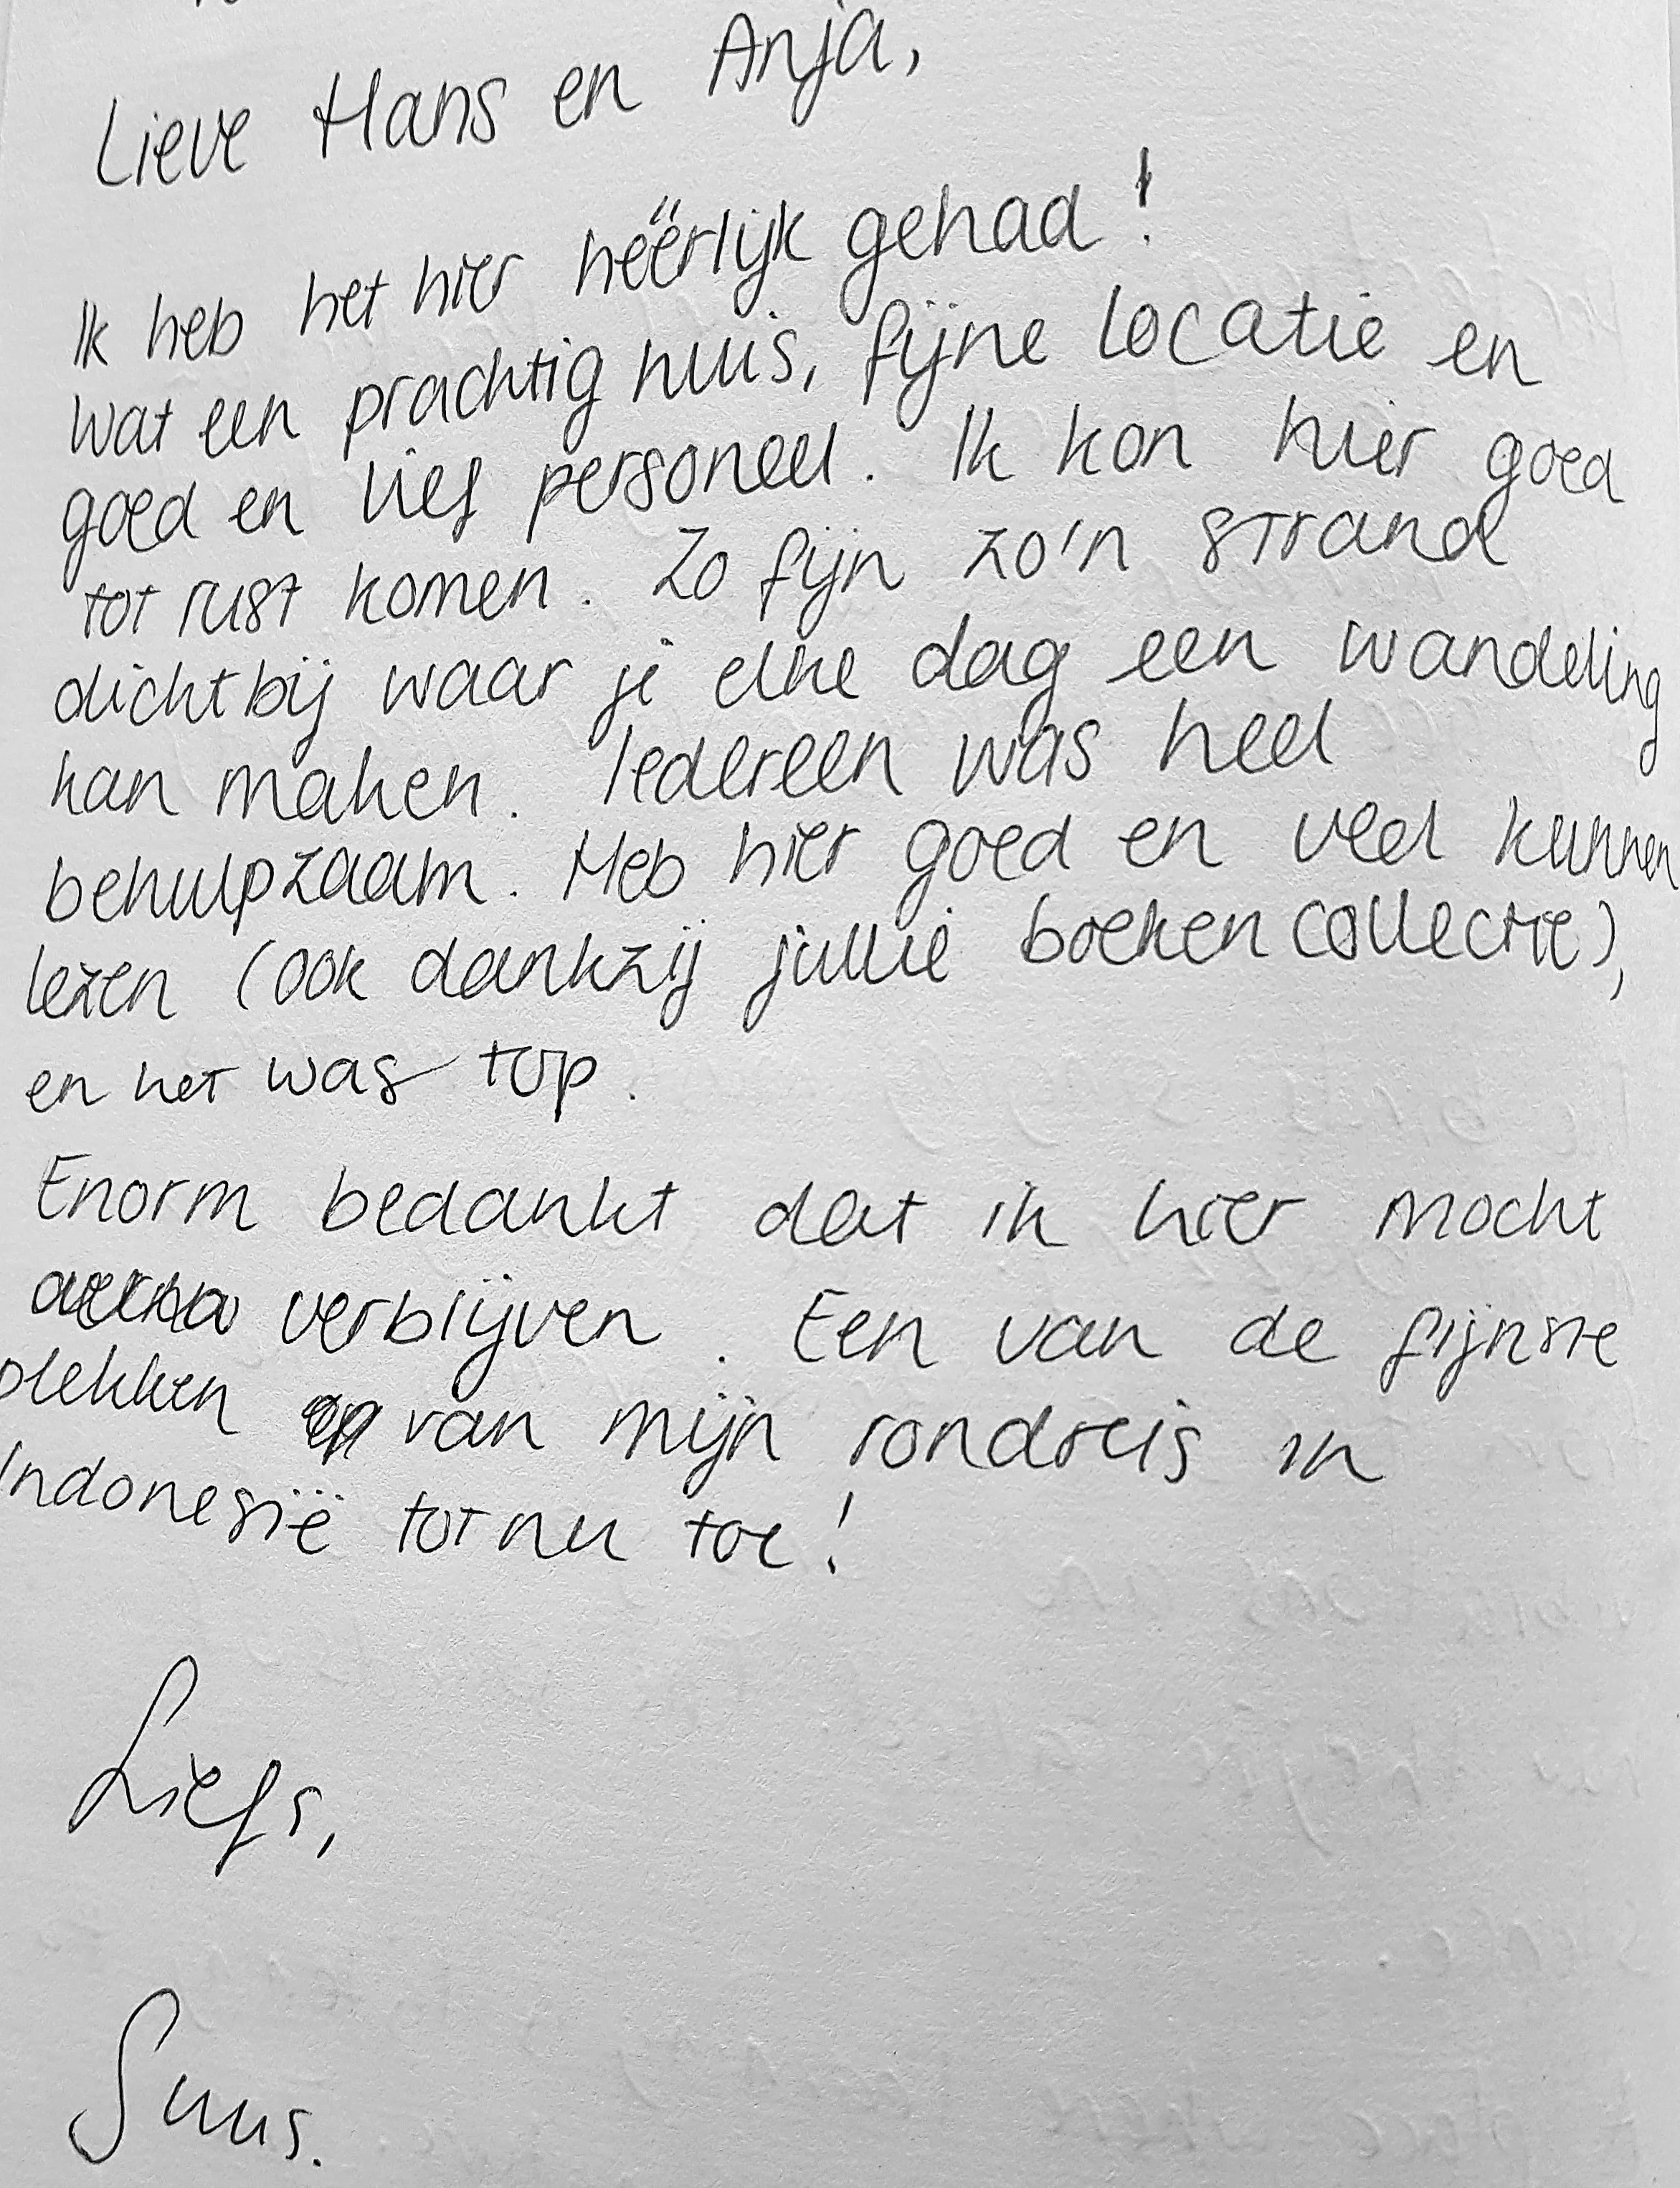 Lieve Hans en Anja,
Ik heb het hier heërlijk gehad!
wat een prachtig huis, fijne locatie en
goed en lief personeel. Ik kon hier goed
tot rust komen. Zo fijn zo'n strand
dichtbij waar je elke dag een wandeling
kan maken. Iedereen was heel
behulpzaam. Heb hier goed en veel kunnen
lezen (ook dankzij jullie boekencollectie),
en het was top.
Enorm bedankt dat ik hier mocht
verblijven. Een van de fijnste
plekken van mijn rondreis in
Indonesië tot nu toe!
Liefs,
Suus.